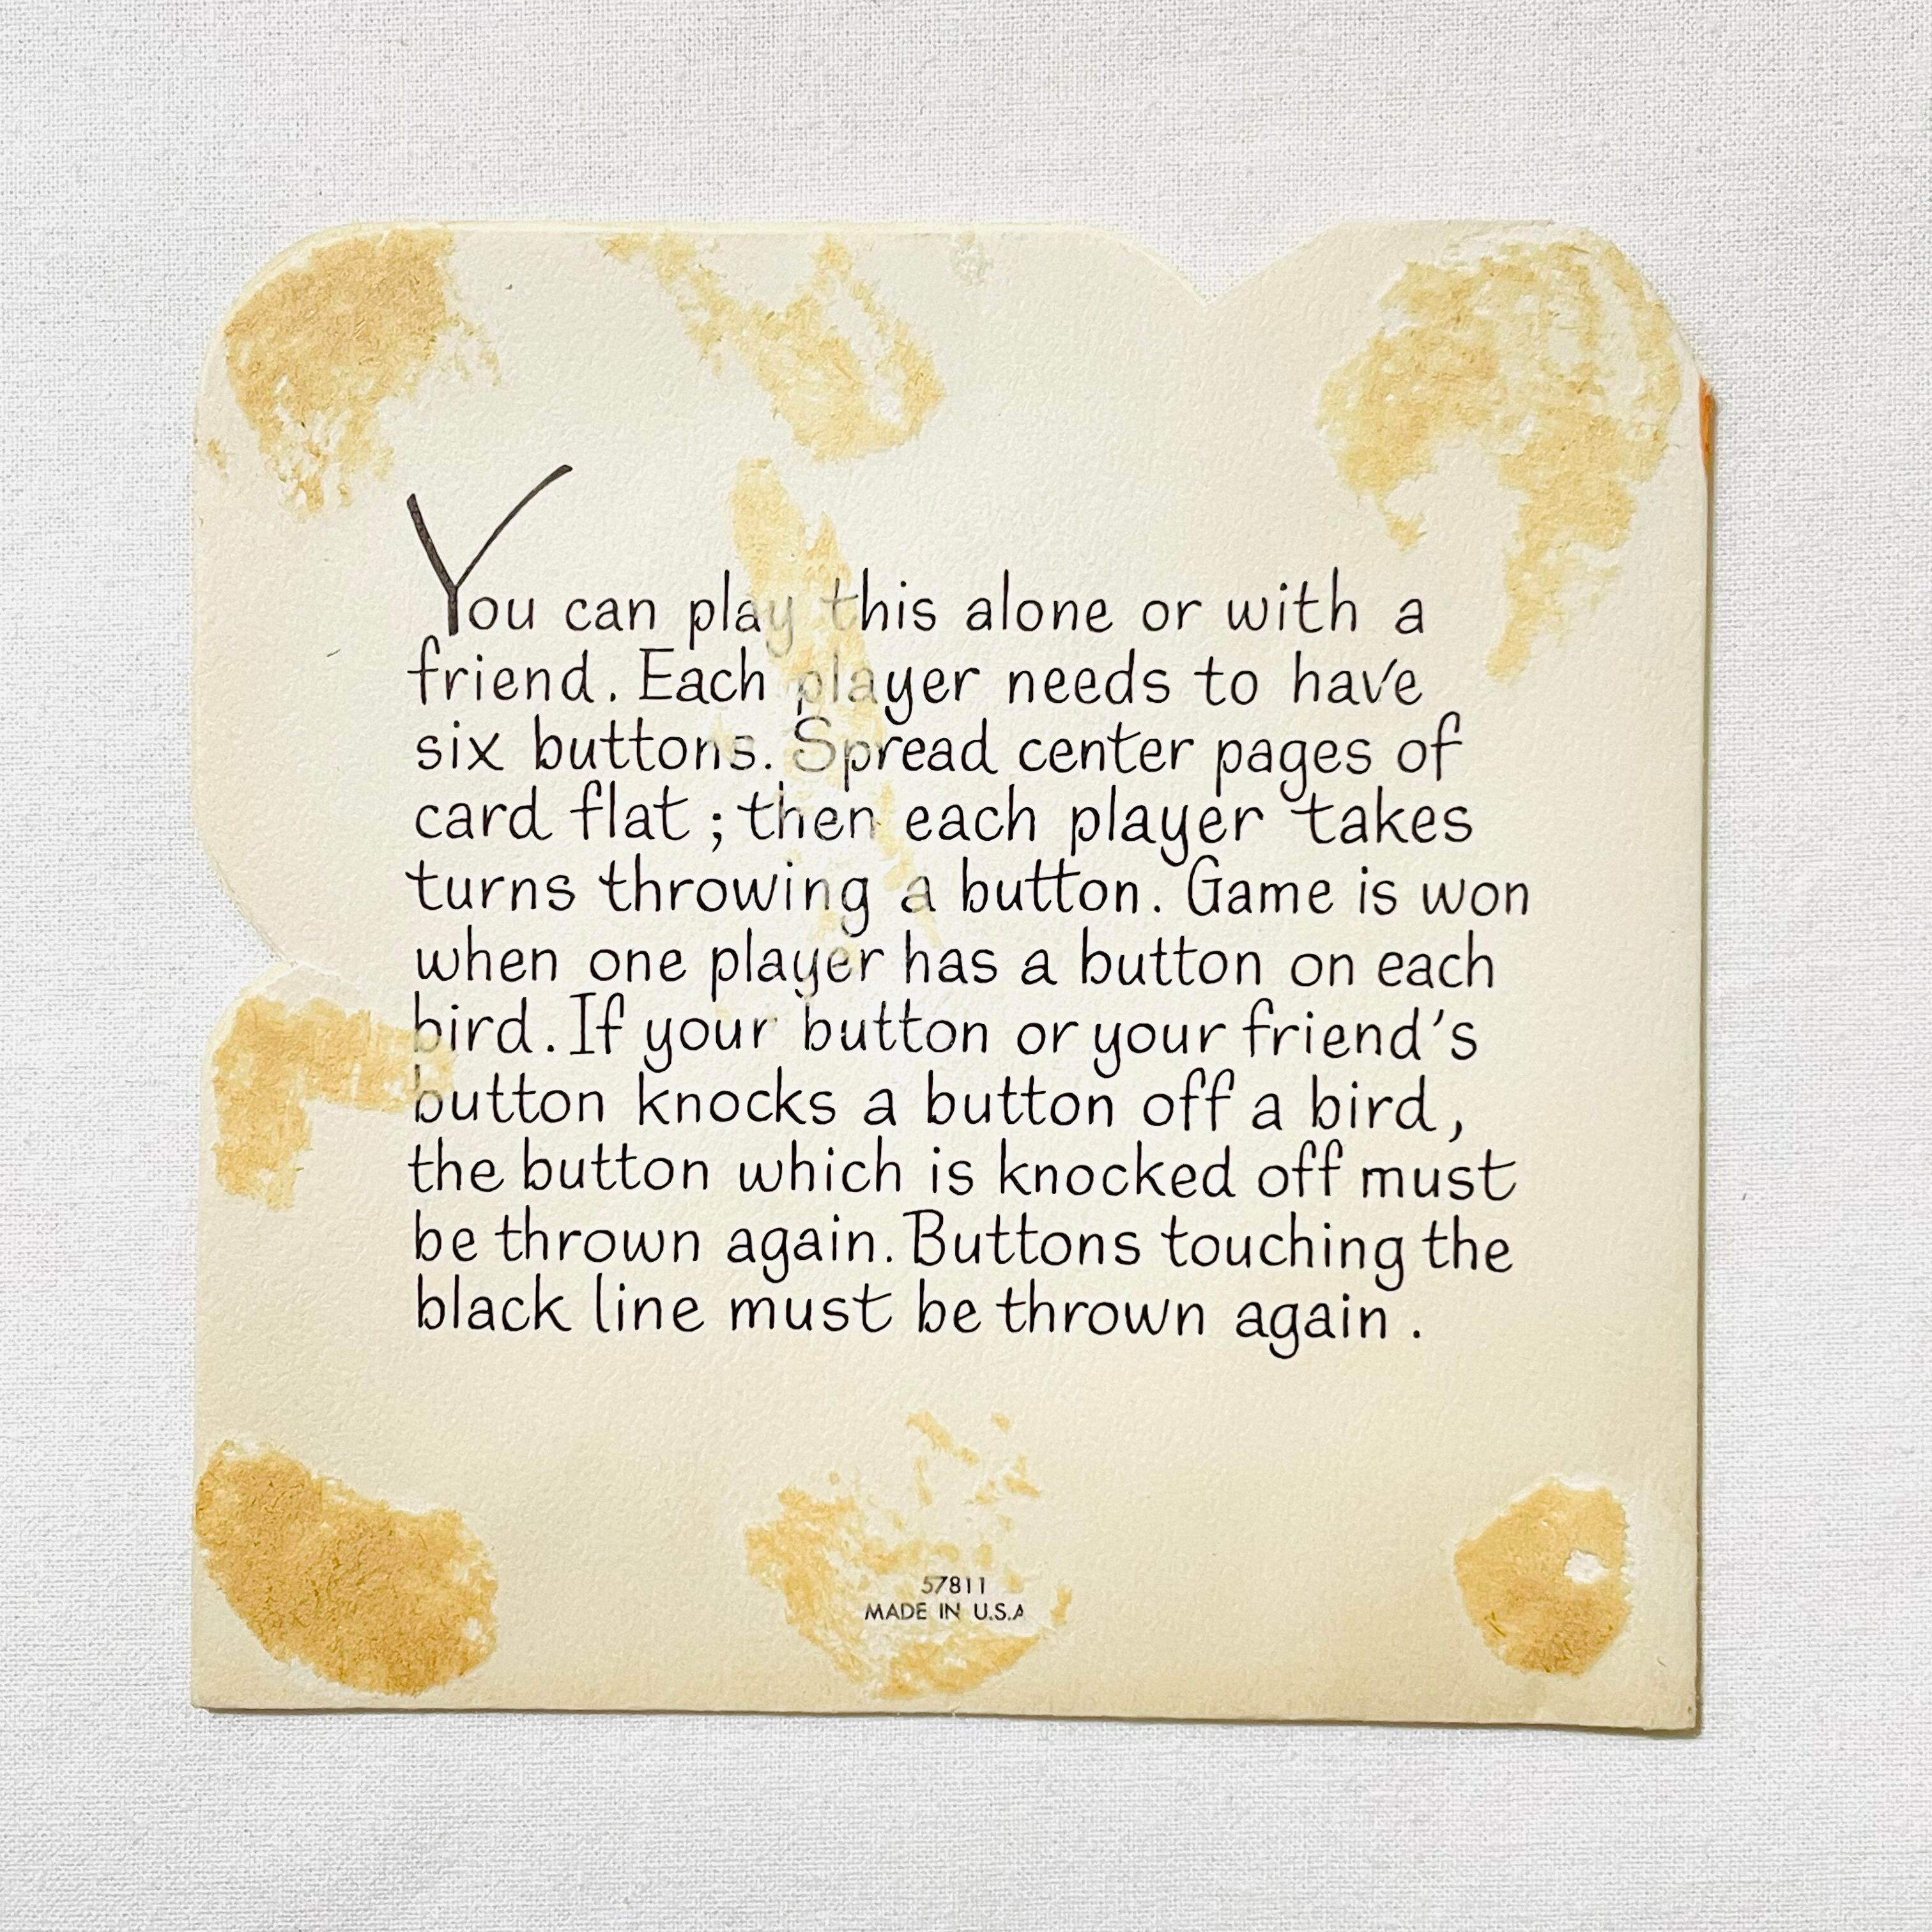 You can play this alone or with a
friend. Each player needs to have
six buttons. Spread center pages of
card flat; then each player takes
turns throwing a button. Game is won
when one player has a button on each
bird. If your button or your friend's
button knocks a button off a bird,
the button which is knocked off must
be thrown again. Buttons touching the
black line must be thrown again.
57811
MADE IN U.S.A